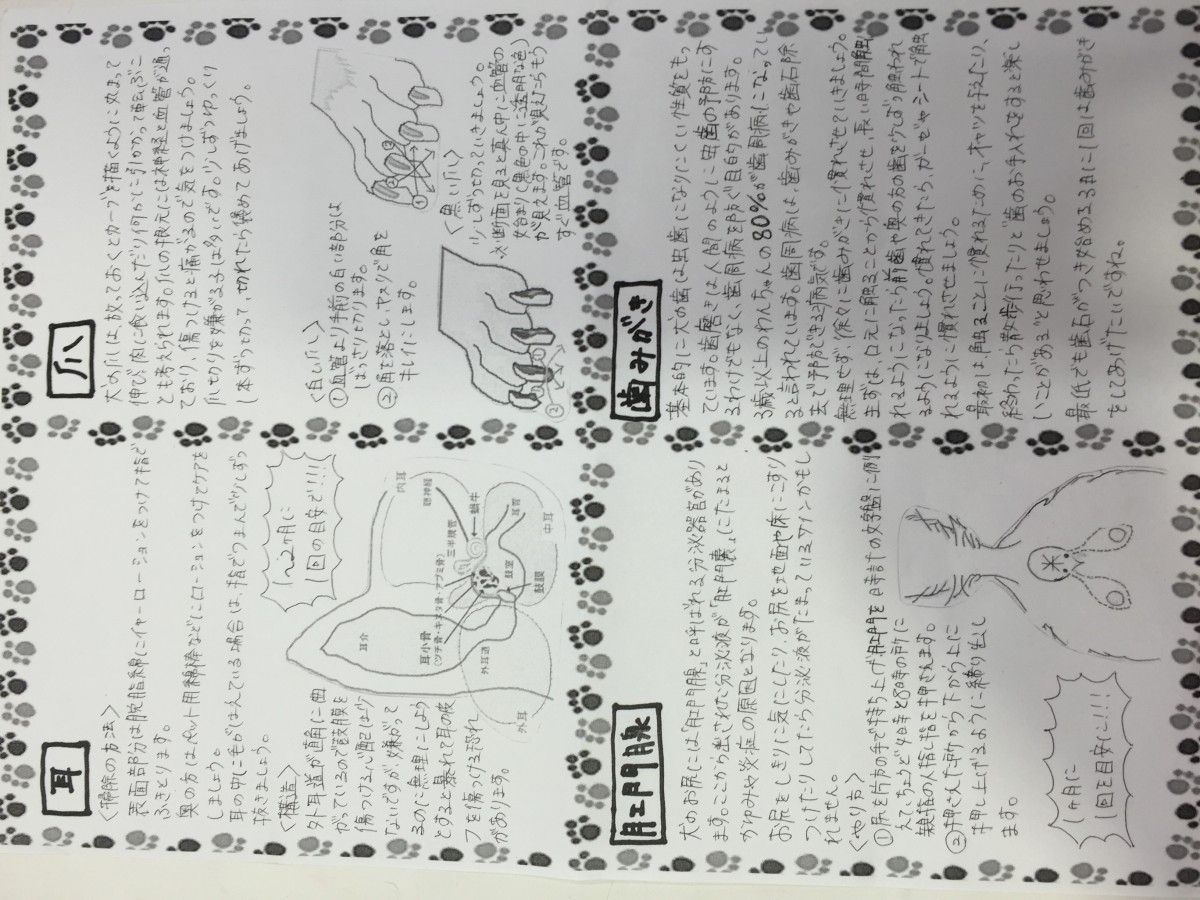 耳
<掃除の方法>
表面部分は脱脂綿にイヤーローションをつけて指で
ふきとります。
奥の方はペット用綿棒などにローションをつけてケアを
しましょう。
耳の中に毛がはえている場合は、指でつまんで少しずつ
抜きましょう。
1~2ヶ月に
1回の目安で!!!
<構造>
外耳道が直角に曲
がっているので鼓膜を
傷つける心配は少
ないですが、嫌がって
るのに無理にしよう
とすると暴れて耳の皮
フを傷つける恐れ
があります。
耳介
内耳
聴神経
三半規管
蝸牛
耳小骨
(ツチ骨・キヌタ骨・アブミ骨)
鼓室
耳管
外耳道
鼓膜
中耳
外耳
爪
犬の爪は、放っておくとカーブを描くように丸まって
伸び、肉に食い込んだり何かに引っかかって転ぶこ
とも考えられます。爪の根元には神経と血管が通っ
ており、傷つけると痛がるので気をつけましょう。
爪切りを嫌がる子は多いです。少しずつゆっくり
1本ずつ切って、切れたら褒めてあげましょう。
<白い爪>
①血管より手前の白い部分は
ばっさりせつります。
②角を落とし、ヤスリで角を
キレイにします。
<黒い爪>
少しずつ切っていきましょう。
必ず断面を見ると真ん中に血管の
始まり(黒色の中に透明な色)
が見えます。これが見えたらもう
すぐ血管です。
肛門腺
犬のお尻には「肛門腺」と呼ばれる分泌器官があり
ます。ここから出された分泌液が「肛門嚢」にたまると
かゆみや炎症の原因となります。
お尻をしきりに気にしたり、お尻を地面や床にこすり
つけたりしてたら分泌液がたまっているサインかもし
れません。
<やり方>
①尻を片方の手で持ち上げ、肛門を時計の文字盤に例
えて、ちょうど4時と8時の所に
親指と人指し指を押さえます。
②押さえた所から下から上に
押し上げるように絞り出し
ます。
1ヶ月に
1回を目安に!!!
歯みがき
基本的に犬の歯は虫歯になりにくい性質をもっ
ています。歯磨きは人間のように虫歯の予防にす
るわけでもなく、歯周病を防ぐ目的があります。
3歳以上のわんちゃんの80%が歯周病になってい
ると言われています。歯周病は、歯みがきや歯石除
去で予防できる病気です。
無理せず、徐々に歯みがきに慣れさせていきましょう。
まずは、口元に触ることから慣れさせ、長い時間触
れるようになったら前歯や奥の方の歯を少しずつ触われ
るようになりましょう。慣れてきたら、ガーゼやシートで触
れるように慣れさせましょう。
最初は、触ることに慣れるために、オヤツを与えたり、
終わったら散歩行ったりと"歯のお手入れをすると楽し
いことがある"と思わせましょう。
最低でも歯石がつき始める3日に1回は歯みがき
をしてあげたいですね。